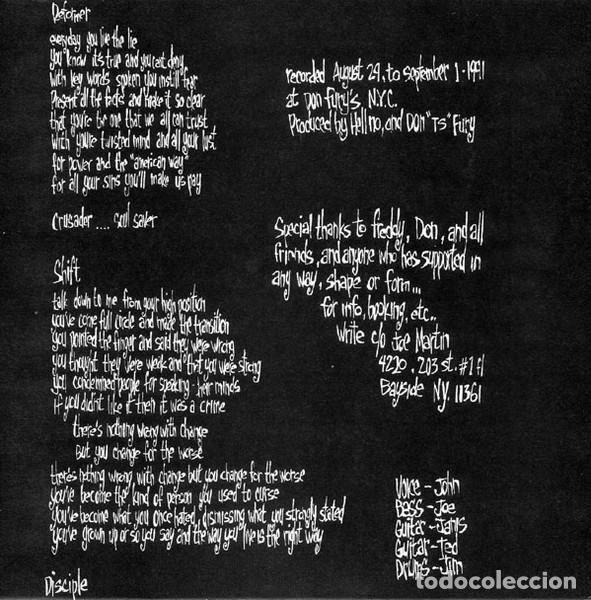 Deformer
everyday you live the lie
you know it's true and you can't deny
with key words spoken you instill fear
Present all the facts and make it so clear
that you're the one that we all can trust
with you're twisted mind and all your lust
for power and the "american way"
for all your sins you'll make us pay
Crusader .... soul saker
Shift
talk down to me from your high position
you've come full circle and made the transition
you pointed the finger and said they were wrong
you thought they were weak and that you were strong
you condemned people for speaking their minds
if you didn't like it then it was a crime
there's nothing wrong with change
but you change for the worse
there's nothing wrong with change but you change for the worse
you've become the kind of person you used to curse
you've become what you once hated, dismissing what you strongly stated
you've grown up or so you say and the way you live is the right way
Disciple
recorded August 29, to september 1 - 1991
at Don Fury's, N.Y.C.
Produced by Hell no, and Don "TS" Fury
Special thanks to freddy, Don, and all
friends, and anyone who has supported in
any way, shape or form...
for info, booking, etc..
write c/o Joe Martin
4220 . 203 st. #1
Bayside NY. 11361
Voice - John
Bass - Joe
Guitar -
Guitar - Ted
Drums - Jim
todocoleccion